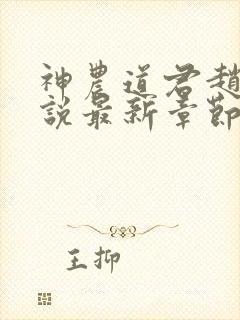 神農道君趙
說最新章節
王抑